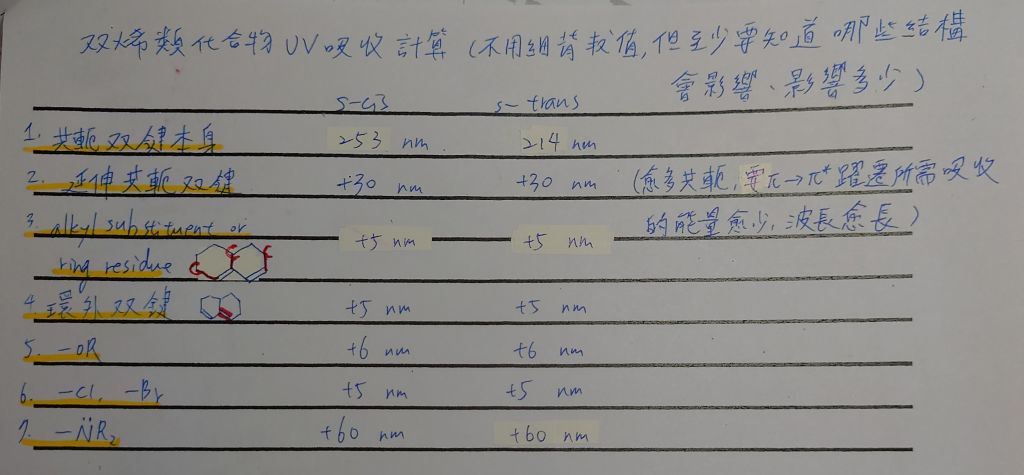 双烯類化合物 UV 吸收計算 (不用細背數值, 但至少要知道 哪些結構
會影響、影響多少)
s-cis s-trans
1. 共軛双鍵本身 253 nm 214 nm
2. 延伸共軛双鍵 +30 nm +30 nm (愈多共軛, 要π→π* 躍遷所需吸收
3. alkyl substituent or +5 nm +5 nm 的能量愈少, 波長愈長)
ring residue
4. 環外双鍵 +5 nm +5 nm
5. -OR +6 nm +6 nm
6. -Cl, -Br +5 nm +5 nm
7. -N̈R₂ +60 nm +60 nm